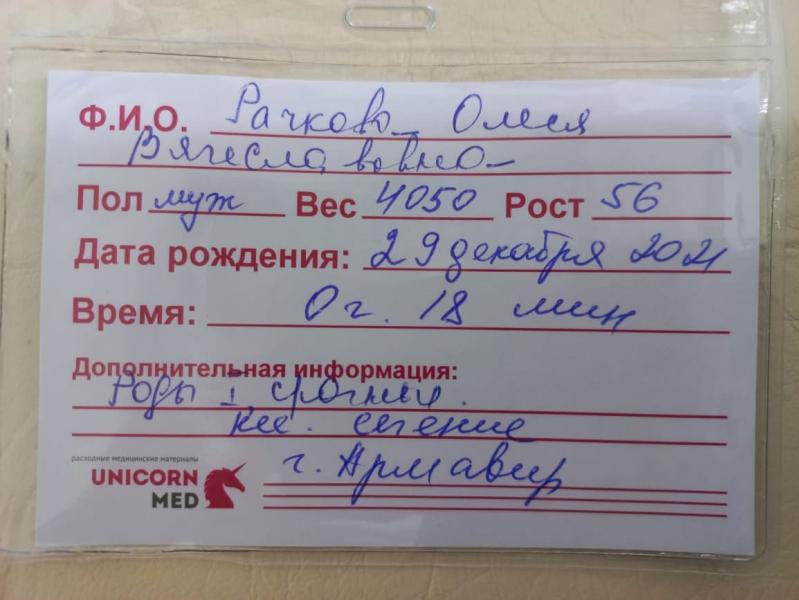 Ф.И.О. Рачкова Олеся
Вячеславовна
Пол муж Вес 4050 Рост 56
Дата рождения: 29 декабря 2021
Время: 0 г. 18 мин
Дополнительная информация:
Роды I, срочные.
кес. сечение
г. Армавир
расходные медицинские материалы
UNICORN
MED